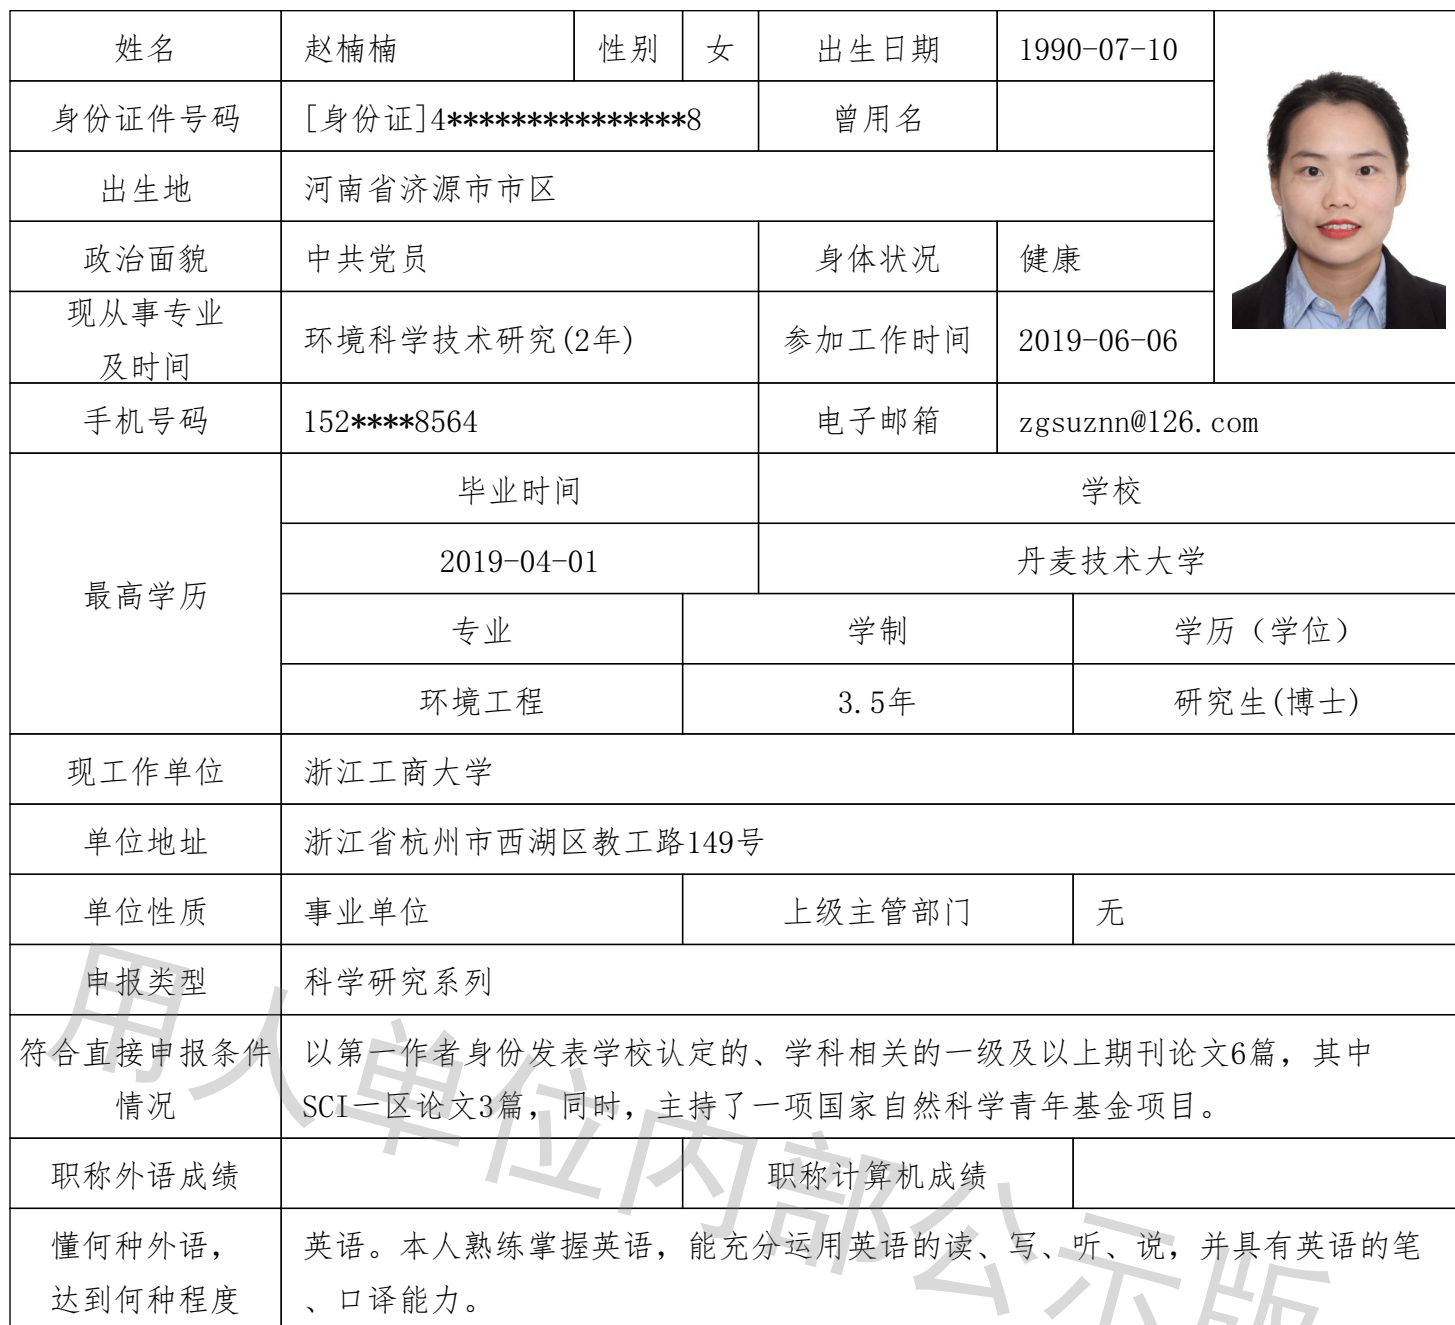 姓名 赵楠楠 性别 女 出生日期 1990-07-10
身份证件号码 [身份证]4***************8 曾用名
出生地 河南省济源市市区
政治面貌 中共党员 身体状况 健康
现从事专业
及时间 环境科学技术研究(2年) 参加工作时间 2019-06-06
手机号码 152****8564 电子邮箱 zgsuznn@126.com
最高学历
毕业时间 学校
2019-04-01 丹麦技术大学
专业 学制 学历（学位）
环境工程 3.5年 研究生(博士)
现工作单位 浙江工商大学
单位地址 浙江省杭州市西湖区教工路149号
单位性质 事业单位 上级主管部门 无
申报类型 科学研究系列
符合直接申报条件
情况
以第一作者身份发表学校认定的、学科相关的一级及以上期刊论文6篇，其中
SCI一区论文3篇，同时，主持了一项国家自然科学青年基金项目。
职称外语成绩 职称计算机成绩
懂何种外语，
达到何种程度
英语。本人熟练掌握英语，能充分运用英语的读、写、听、说，并具有英语的笔
、口译能力。
用人单位内部公示版